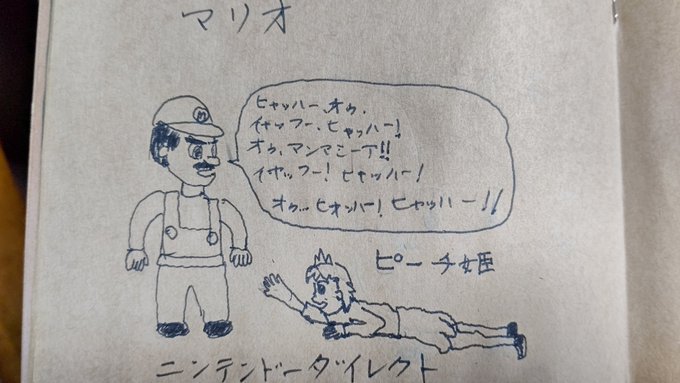 マリオ
M
ヒャッハー、オゥ、
イヤッフー、ヒャッハー!
オゥ、マンマミーア!!
イヤッフー! ヒャッハー!
オゥ…ヒオッハー! ヒャッハー!!
ピーチ姫
ニンテンドーダイレクト